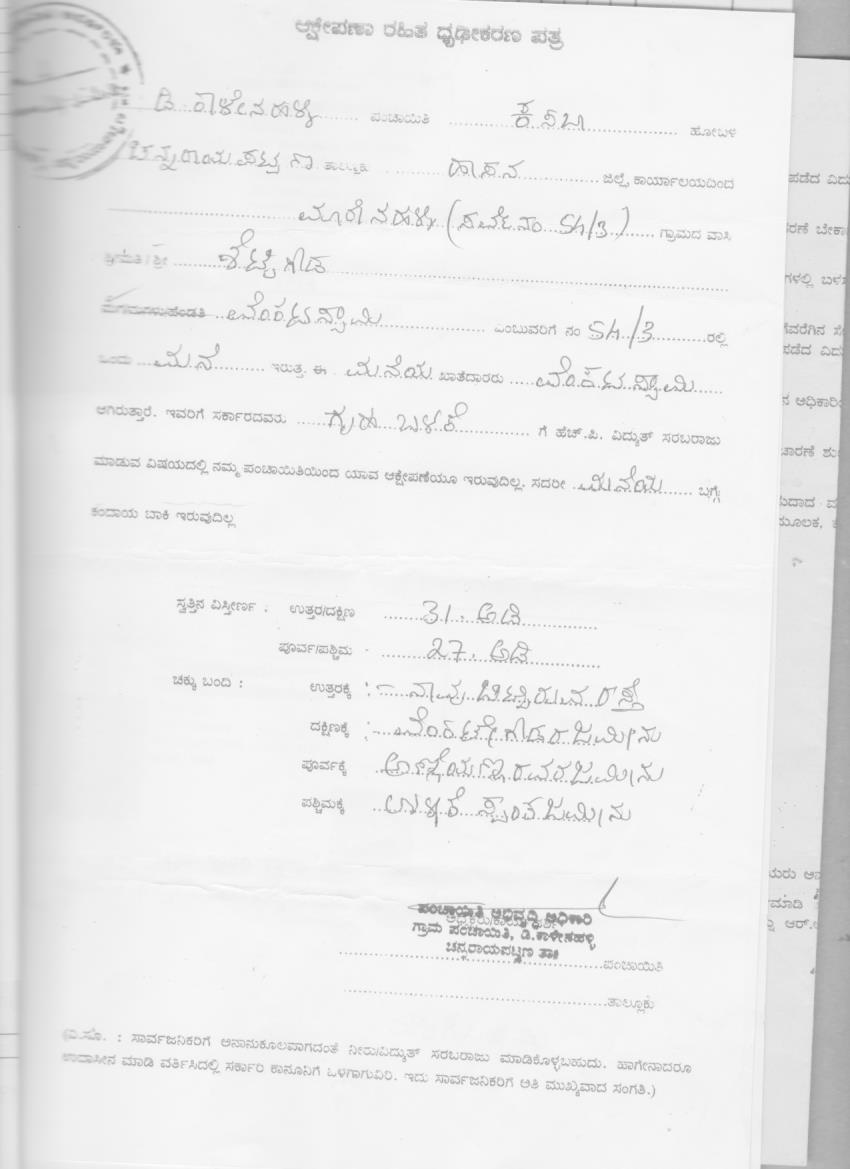 ಆಕ್ಷೇಪಣಾ ರಹಿತ ಧೃಢೀಕರಣ ಪತ್ರ
ಡಿ.ಕಾಳೇನಹಳ್ಳಿ ಪಂಚಾಯಿತಿ ಕಸಬಾ ಹೋಬಳಿ
ಚನ್ನರಾಯಪಟ್ಟಣ ತಾಲ್ಲೂಕು ಹಾಸನ ಜಿಲ್ಲೆ, ಕಾರ್ಯಾಲಯದಿಂದ
ಮೂಕೇನಹಳ್ಳಿ (ಸರ್ವೆ.ನಂ. 54/3) ಗ್ರಾಮದ ವಾಸಿ
ಶ್ರೀಮತಿ / ಶ್ರೀ ಶೆಟ್ಟಿಗೌಡ
ಮಗ/ಮಗಳು/ಹೆಂಡತಿ ವೆಂಕಟಸ್ವಾಮಿ ಎಂಬುವರಿಗೆ ನಂ 54/3 ರಲ್ಲಿ
ಒಂದು ಮನೆ ಇರುತ್ತೆ. ಈ ಮನೆಯ ಖಾತೆದಾರರು ವೆಂಕಟಸ್ವಾಮಿ
ಆಗಿರುತ್ತಾರೆ. ಇವರಿಗೆ ಸರ್ಕಾರದವರು ಗೃಹ ಬಳಕೆ ಗೆ ಹೆಚ್.ಪಿ. ವಿದ್ಯುತ್ ಸರಬರಾಜು
ಮಾಡುವ ವಿಷಯದಲ್ಲಿ ನಮ್ಮ ಪಂಚಾಯಿತಿಯಿಂದ ಯಾವ ಆಕ್ಷೇಪಣೆಯೂ ಇರುವುದಿಲ್ಲ. ಸದರೀ ಮನೆಯ ಬಗ್ಗೆ
ಕಂದಾಯ ಬಾಕಿ ಇರುವುದಿಲ್ಲ
ಸ್ವತ್ತಿನ ವಿಸ್ತೀರ್ಣ : ಉತ್ತರ/ದಕ್ಷಿಣ 31. ಅಡಿ
ಪೂರ್ವ/ಪಶ್ಚಿಮ 27. ಅಡಿ
ಚಕ್ಕು ಬಂದಿ : ಉತ್ತರಕ್ಕೆ : ರಸ್ತೆ
ದಕ್ಷಿಣಕ್ಕೆ : ವೆಂಕಟೇಗೌಡರ ಜಮೀನು
ಪೂರ್ವಕ್ಕೆ ಜಮೀನು
ಪಶ್ಚಿಮಕ್ಕೆ ಸ್ವಂತ ಜಮೀನು
ಪಂಚಾಯಿತಿ ಅಭಿವೃದ್ಧಿ ಅಧಿಕಾರಿ
ಗ್ರಾಮ ಪಂಚಾಯಿತಿ, ಡಿ.ಕಾಳೇನಹಳ್ಳಿ
ಚನ್ನರಾಯಪಟ್ಟಣ ತಾ||
ಪಂಚಾಯಿತಿ
ತಾಲ್ಲೂಕು
(ವಿ.ಸೂ. : ಸಾರ್ವಜನಿಕರಿಗೆ ಅನಾನುಕೂಲವಾಗದಂತೆ ನೀರು/ವಿದ್ಯುತ್ ಸರಬರಾಜು ಮಾಡಿಕೊಳ್ಳಬಹುದು. ಹಾಗೇನಾದರೂ
ಉದಾಸೀನ ಮಾಡಿ ವರ್ತಿಸಿದಲ್ಲಿ ಸರ್ಕಾರಿ ಕಾನೂನಿಗೆ ಒಳಗಾಗುವಿರಿ. ಇದು ಸಾರ್ವಜನಿಕರಿಗೆ ಅತಿ ಮುಖ್ಯವಾದ ಸಂಗತಿ.)